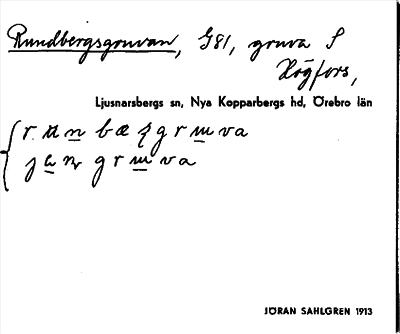 Rundbergsgruvan, G81, gruva S
Högfors,
Ljusnarsbergs sn, Nya Kopparbergs hd, Örebro län
gr va
gr va
JÖRAN SAHLGREN 1913